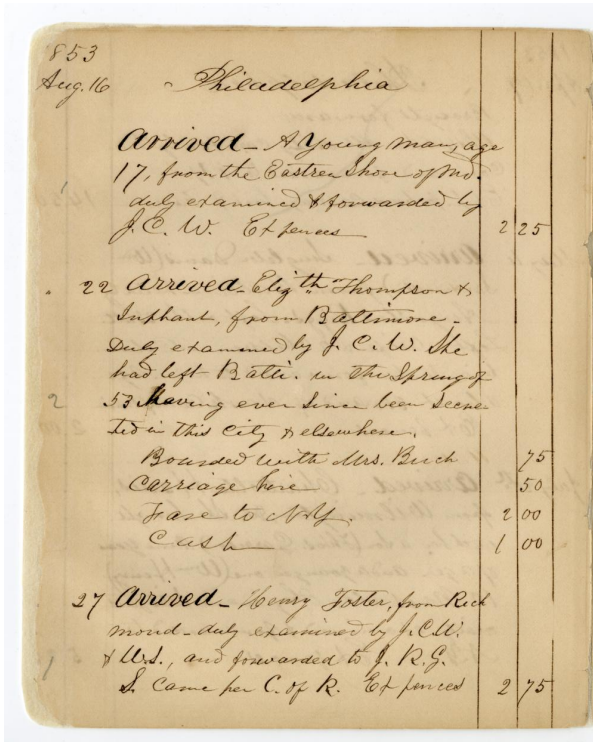 1853
Aug. 16 Philadelphia
Arrived - A Young man, age
17, from the Eastren Shore of Md.
duly examined & forwarded by
J. C. W. Expences 2 25
22 Arrived - Elizth Thompson &
Inphant, from Baltimore -
Duly examined by J. C. W. She
had left Balti. in the Spring of
2 53 Having ever since been secre
ted in this City & elsewhere.
Boarded with Mrs. Buch 75
Carriage hire 50
Fare to N.Y. 2 00
Cash 1 00
27 Arrived - Henry Foster, from Rich
mond - duly examined by J. C. W.
1 & W.S., and forwarded to J. R. G.
S. Came per C. of R. Expences 2 75